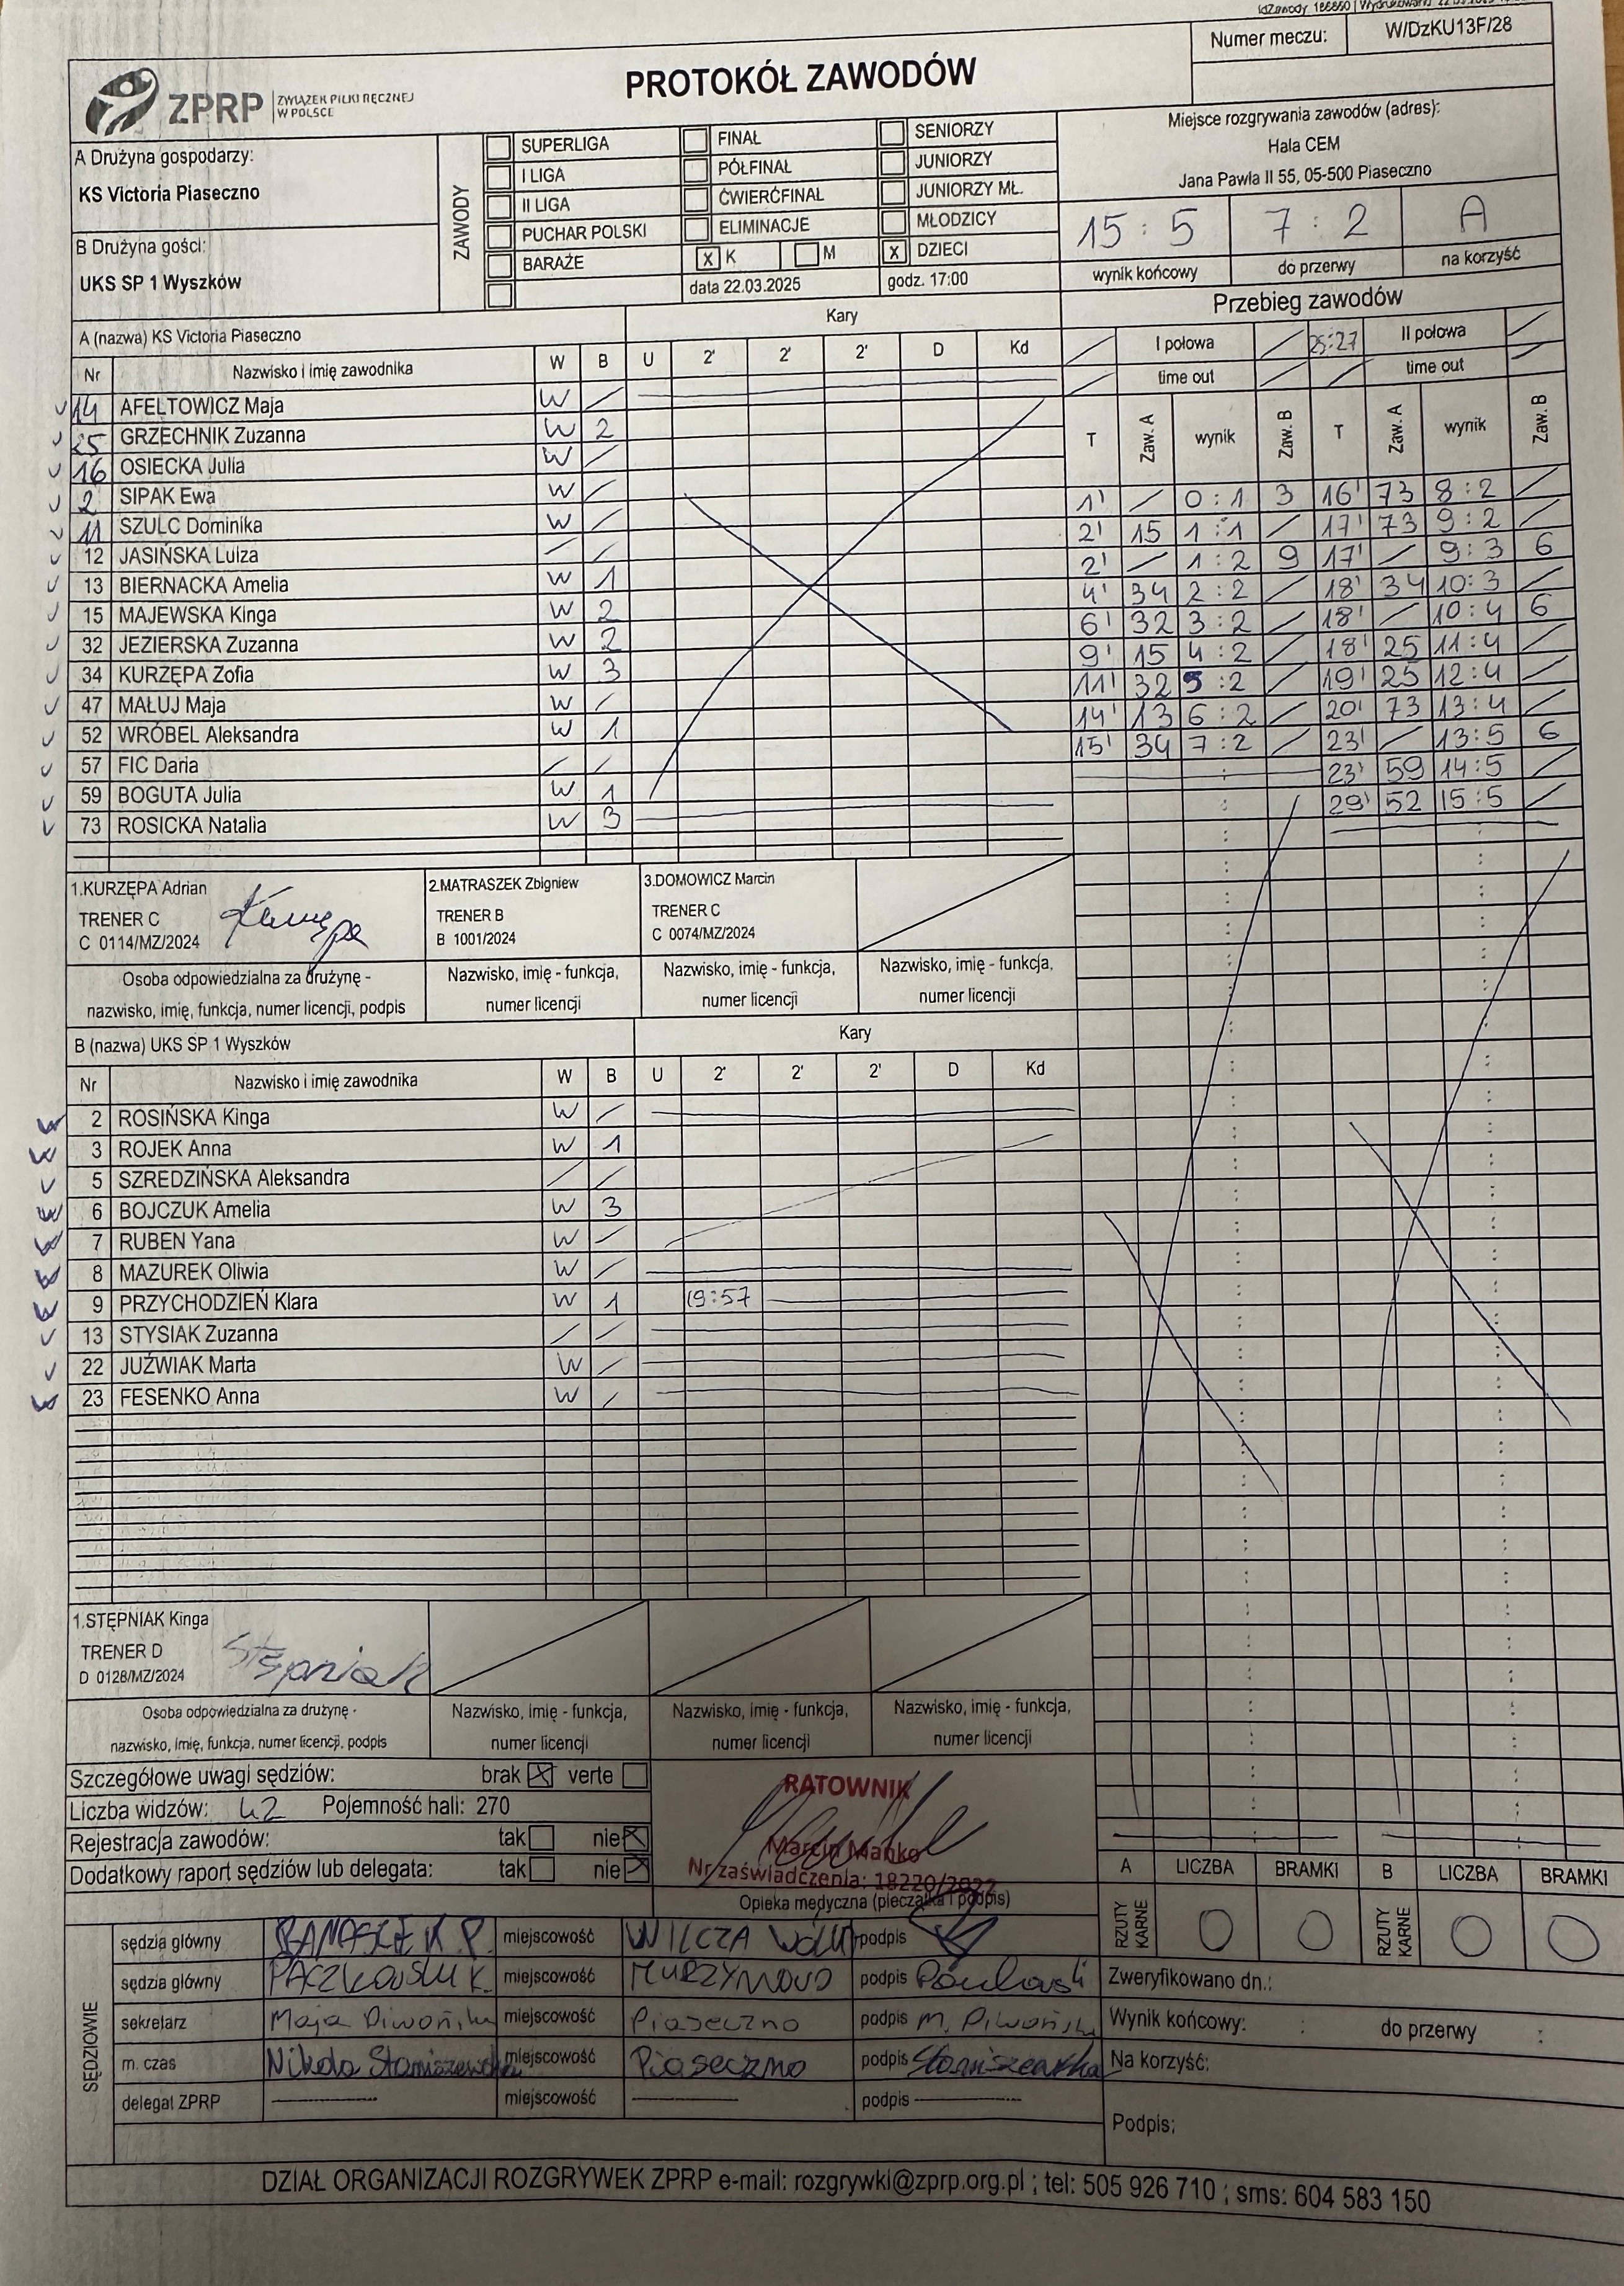 Numer meczu: W/DzKU13F/28
ZPRP ZWIĄZEK PIŁKI RĘCZNEJ W POLSCE
PROTOKÓŁ ZAWODÓW
A Drużyna gospodarzy:
KS Victoria Piaseczno
B Drużyna gości:
UKS SP 1 Wyszków
ZAWODY
SUPERLIGA FINAŁ SENIORZY
I LIGA PÓŁFINAŁ JUNIORZY
II LIGA ĆWIERĆFINAŁ JUNIORZY MŁ.
PUCHAR POLSKI ELIMINACJE MŁODZICY
BARAŻE x K M x DZIECI
data 22.03.2025 godz. 17:00
Miejsce rozgrywania zawodów (adres):
Hala CEM
Jana Pawła II 55, 05-500 Piaseczno
15 : 5 7 : 2 A
wynik końcowy do przerwy na korzyść
A (nazwa) KS Victoria Piaseczno Kary
Nr Nazwisko i imię zawodnika W B U 2' 2' 2' D Kd
14 AFELTOWICZ Maja W /
25 GRZECHNIK Zuzanna W 2
16 OSIECKA Julia W /
2 SIPAK Ewa W /
11 SZULC Dominika W /
12 JASIŃSKA Luiza / /
13 BIERNACKA Amelia W 1
15 MAJEWSKA Kinga W 2
32 JEZIERSKA Zuzanna W 2
34 KURZĘPA Zofia W 3
47 MAŁUJ Maja W /
52 WRÓBEL Aleksandra W 1
57 FIC Daria / /
59 BOGUTA Julia W 1
73 ROSICKA Natalia W 3
1.KURZĘPA Adrian
TRENER C
C 0114/MZ/2024
2.MATRASZEK Zbigniew
TRENER B
B 1001/2024
3.DOMOWICZ Marcin
TRENER C
C 0074/MZ/2024
Osoba odpowiedzialna za drużynę - Nazwisko, imię - funkcja, Nazwisko, imię - funkcja, Nazwisko, imię - funkcja,
nazwisko, imię, funkcja, numer licencji, podpis numer licencji numer licencji numer licencji
B (nazwa) UKS SP 1 Wyszków Kary
Nr Nazwisko i imię zawodnika W B U 2' 2' 2' D Kd
2 ROSIŃSKA Kinga W /
3 ROJEK Anna W 1
5 SZREDZIŃSKA Aleksandra / /
6 BOJCZUK Amelia W 3
7 RUBEN Yana W /
8 MAZUREK Oliwia W /
9 PRZYCHODZIEŃ Klara W 1 19:57
13 STYSIAK Zuzanna / /
22 JUŹWIAK Marta W /
23 FESENKO Anna W /
1.STĘPNIAK Kinga
TRENER D
D 0128/MZ/2024
Stępniak
Osoba odpowiedzialna za drużynę - Nazwisko, imię - funkcja, Nazwisko, imię - funkcja, Nazwisko, imię - funkcja,
nazwisko, imię, funkcja, numer licencji, podpis numer licencji numer licencji numer licencji
Przebieg zawodów
/ I połowa / 25:27 II połowa /
/ time out / / time out /
T Zaw. A wynik Zaw. B T Zaw. A wynik Zaw. B
1' / 0 : 1 3 16' 73 8 : 2 /
2' 15 1 : 1 / 17' 73 9 : 2 /
2' / 1 : 2 9 17' / 9 : 3 6
4' 34 2 : 2 / 18' 34 10 : 3 /
6' 32 3 : 2 / 18' / 10 : 4 6
9' 15 4 : 2 / 18' 25 11 : 4 /
11' 32 5 : 2 / 19' 25 12 : 4 /
14' 13 6 : 2 / 20' 73 13 : 4 /
15' 34 7 : 2 / 23' / 13 : 5 6
23' 59 14 : 5 /
29' 52 15 : 5 /
Szczegółowe uwagi sędziów: brak verte
Liczba widzów: 42 Pojemność hali: 270
Rejestracja zawodów: tak nie
Dodatkowy raport sędziów lub delegata: tak nie
RATOWNIK
Marcin Mańko
Nr zaświadczenia: 18220/2022
Opieka medyczna (pieczątka i podpis)
A LICZBA BRAMKI B LICZBA BRAMKI
RZUTY KARNE 0 0 RZUTY KARNE 0 0
SĘDZIOWIE
sędzia główny BANASZEK P. miejscowość WILCZA podpis
sędzia główny PACZKOWSKI K. miejscowość MURZYNOWO podpis
sekretarz Maja Piwońska miejscowość Piaseczno podpis M. Piwońska
m. czas Nikola Staniszewska miejscowość Piaseczno podpis Staniszewska
delegat ZPRP miejscowość podpis
Zweryfikowano dn.:
Wynik końcowy: : do przerwy :
Na korzyść:
Podpis:
DZIAŁ ORGANIZACJI ROZGRYWEK ZPRP e-mail: rozgrywki@zprp.org.pl ; tel: 505 926 710 ; sms: 604 583 150